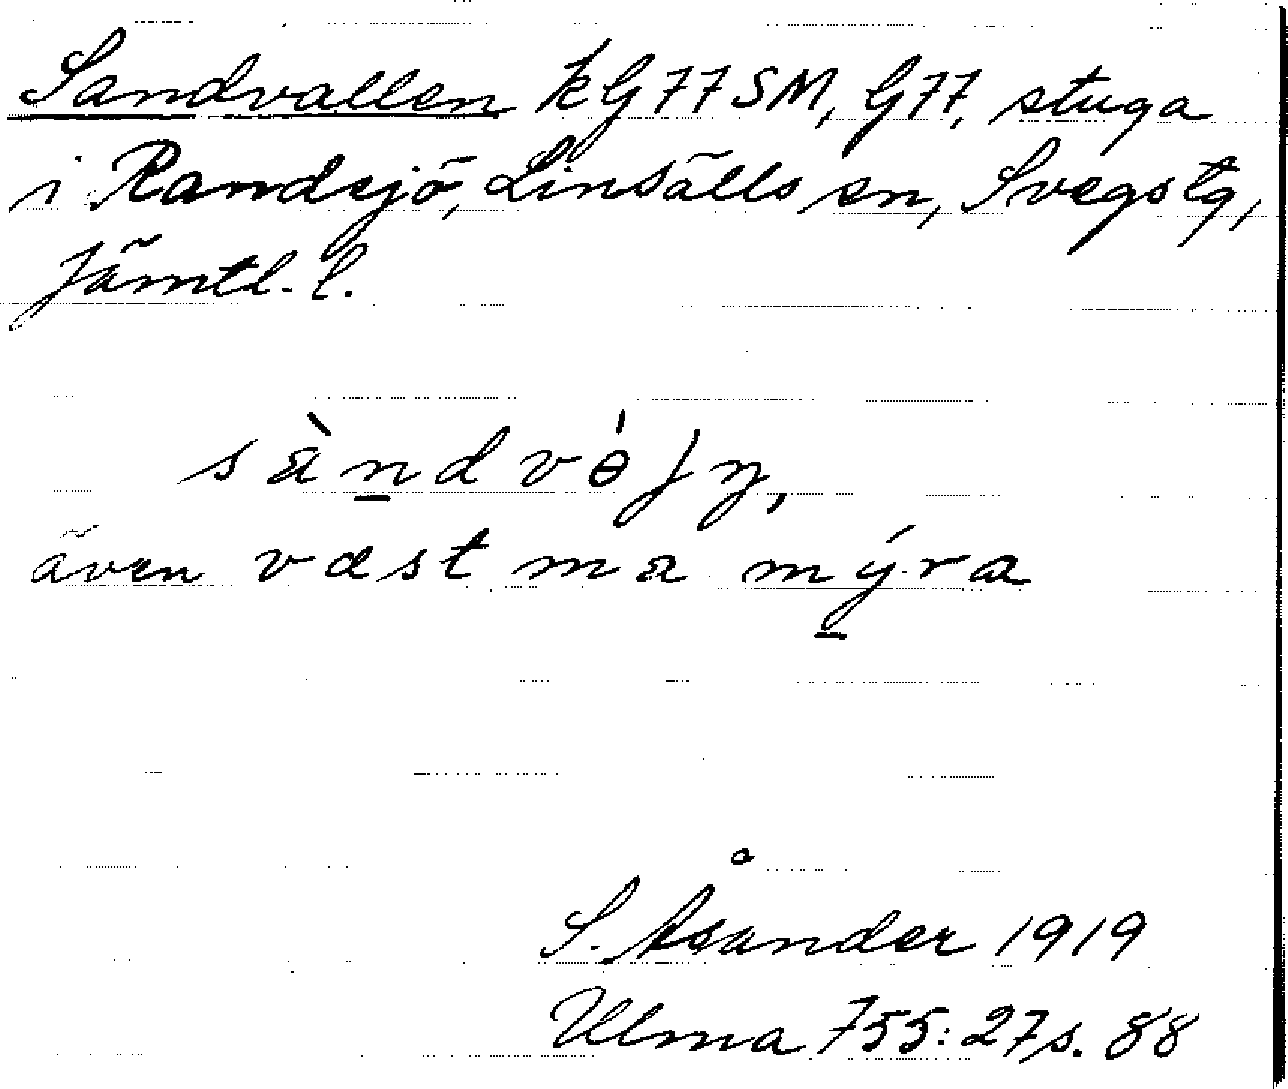 Sandvallen kG77SM, G77, stuga
i Randsjö, Linsälls sn, Svegs tg,
Jämtl. l.
sàndvèʃn̥,
även væst ma mýra
S. Åsander 1919
Ulma 755:27 s. 88